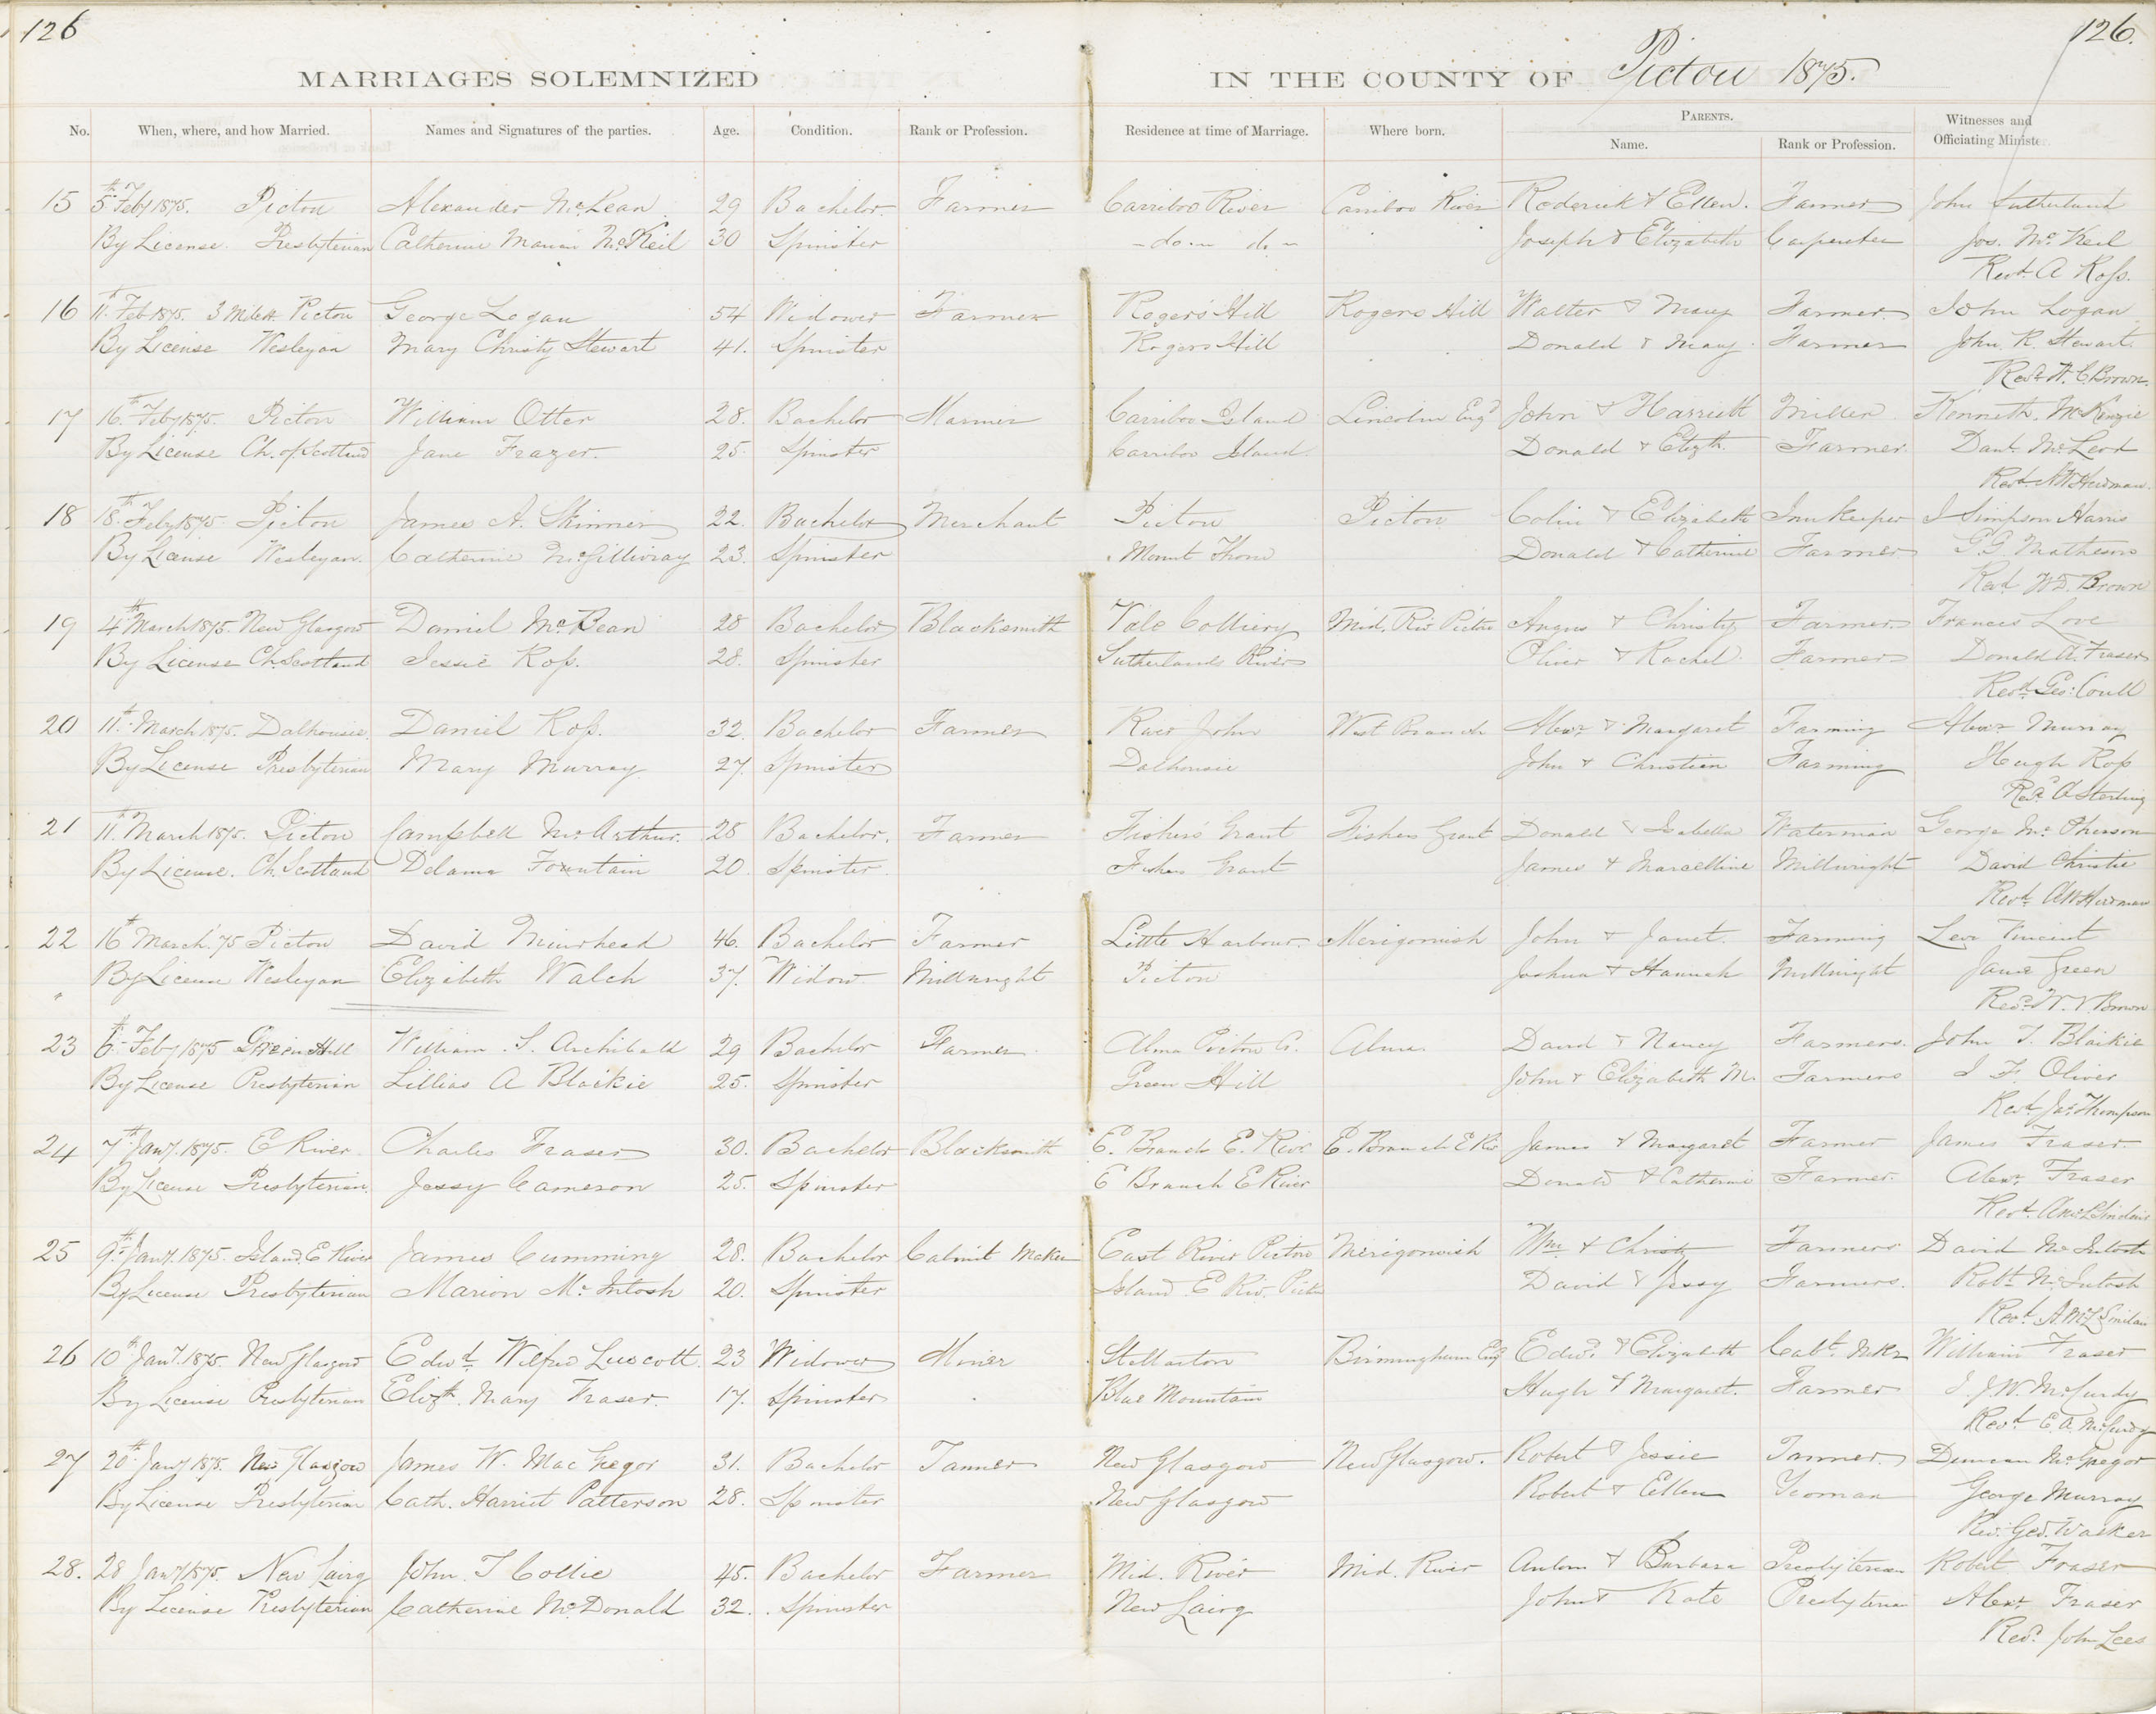 126
126.
MARRIAGES SOLEMNIZED IN THE COUNTY OF Pictou 1875.
No. When, where, and how Married. Names and Signatures of the parties. Age. Condition. Rank or Profession. Residence at time of Marriage. Where born. PARENTS. Name. Rank or Profession. Witnesses and Officiating Minister.
15 5th Feby 1875. Pictou Alexander McLean 29 Bachelor. Farmer Carriboo River Carriboo River Roderick & Ellen. Farmer John Sutherland
By License. Presbyterian Catherine Marian McKeil 30 Spinster - do - do - Joseph & Elizabeth Carpenter Jos. McKeil
Revd. A Ross.
16 11th Feb 1875. 3 Miles Pictou George Logan 54 Widower Farmer Rogers' Hill Rogers Hill Walter & Mary Farmer. John Logan
By License Wesleyan Mary Christy Stewart 41. Spinster Rogers Hill Donald & Mary Farmer John R. Stewart.
Revd. W. C Brown.
17 16th Feby 1875. Pictou William Otter 28. Bachelor Mariner Carriboo Island Lincoln Engd John & Harriett Miller Kenneth McKenzie
By License Ch. of Scotland Jane Frazer. 25 Spinster Carriboo Island. Donald & Elizth. Farmer. Danl. McLeod
Revd. AW Herdman.
18 18th Feby 1875 Pictou James A. Skinner 22. Bachelor Merchant Pictou Pictou Colin & Elizabeth Innkeeper J Simpson Harris
By License Wesleyan. Catherine McGillivray 23. Spinster Mount Thom Donald & Catherine Farmer G.G. Mathews
Revd Brown
19 4th March 1875. New Glasgow Daniel McBean 28 Bachelor Blacksmith Vale Colliery Mid. Riv Pictou Angus & Christy Farmer. Frances Love
By License Ch. Scotland Jessie Ross. 28. Spinster Sutherlands River Oliver & Rachel. Farmer Donald A. Fraser
Revd. Geo: Coull
20 11th March 1875. Dalhousie. Daniel Ross. 32. Bachelor Farmer River John West Branch Alexr & Margaret Farming Alexr Murray
By License Presbyterian Mary Murray 27. Spinster Dalhousie John & Christien Farming Hugh Ross
Revd A Sterling
21 11th March 1875. Pictou Campbell McArthur. 28 Bachelor. Farmer Fishers' Grant Fishers Grant Donald & Isabella Waterman George McPherson
By License. Ch. Scotland Delama Fountain 20. Spinster Fishers Grant James & Marcelline Millwright David Christie
Revd. AW Herdman
22 16th March '75 Pictou David Muirhead 46. Bachelor Farmer Little Harbour. Merigomish John & Janet. Farming Levi Vincent
By License Wesleyan Elizabeth Walch 37. Widow Millwright Pictou Joshua & Hannah Millwright Jane Green
Revd. Brown
23 6th Feby 1875 Green Hill William S. Archibald 29 Bachelor Farmer. Alma Pictou Co. Alma David & Nancy Farmers. John T. Blaikie
By License Presbyterian Lillias A Blaikie 25. Spinster Green Hill John & Elizabeth M. Farmers J F. Oliver
Revd. Jas. Thompson
24 7th Jany. 1875. E River. Charles Fraser 30. Bachelor Blacksmith E. Branch E. River E. Branch E Riv James & Margaret Farmer James Fraser.
By License Presbyterian. Jessy Cameron 25. Spinster E Branch E River Donald & Catherine Farmer. Alexr. Fraser
Revd.
25 9th Jany. 1875. Island, E River James Cumming 28. Bachelor Cabinit Maker East River Pictou Merigomish Wm. & Christy Farmers David McIntosh
By License Presbyterian Marion McIntosh 20. Spinster Island E Riv. Pictou David & Jessy Farmers. Robt. McIntosh
Revd.
26 10th Jany. 1875. New Glasgow Edwd. Wilfred Luscott 23 Widower Miner Stellarton Birmingham Eng Edwd. & Elizabeth Cabt. Mkr William Fraser
By License Presbyterian Elizth. Mary Fraser. 17. Spinster Blue Mountain Hugh & Margaret. Farmer J.W. McCurdy
Revd. E. A. McCurdy
27 20th Jany 1875. New Glasgow James W. MacGregor 31. Bachelor Tanner New Glasgow New Glasgow. Robert & Jessie Tanner. Duncan McGregor
By License Presbyterian Cath. Harriet Patterson 28. Spinster New Glasgow Robert & Ellen Yeoman George Murray
Rev. Geo. Walker
28. 28 Jany 1875. New Lairg John T Collie 45. Bachelor Farmer Mid. River Mid. River & Barbara Presbyterian Robert Fraser
By License Presbyterian Catherine McDonald 32. Spinster New Lairg John & Kate Presbyterian Alexr. Fraser
Revd. John Lees